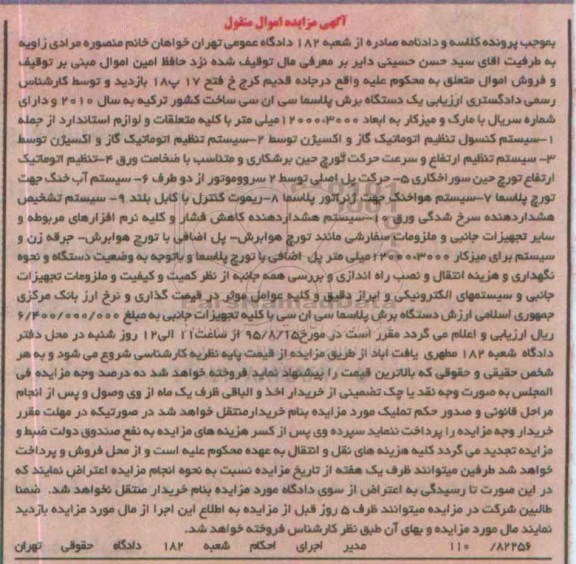 آگهی مزایده اموال منقول
بموجب پرونده کلاسه و دادنامه صادره از شعبه ۱۸۲ دادگاه عمومی تهران خواهان خانم منصوره مرادی زاویه
به طرفیت اقای سید حسن حسینی دایر بر معرفی مال توقیف شده نزد حافظ امین اموال مبنی بر توقیف
و فروش اموال متعلق به محکوم علیه واقع درجاده قدیم کرج خ فتح ۱۷ پ۱۸ بازدید و توسط کارشناس
رسمی دادگستری ارزیابی یک دستگاه برش پلاسما سی ان سی ساخت کشور ترکیه به سال ۲۰۱۰ و دارای
شماره سریال با مارک و میزکار به ابعاد ۱۲۰۰۰،۳۰۰۰میلی متر با کلیه متعلقات و لوازم استاندارد از جمله
۱-سیستم کنسول تنظیم اتوماتیک گاز و اکسیژن توسط ۲-سیستم تنظیم اتوماتیک گاز و اکسیژن توسط
۳- سیستم تنظیم ارتفاع و سرعت حرکت تورچ حین برشکاری و متناسب با ضخامت ورق ۴-تنظیم اتوماتیک
ارتفاع تورچ حین سور اخکاری ۵- حرکت پل اصلی توسط ۲ سرووموتور از دو طرف ۶- سیستم آب خنک جهت
تورچ پلاسما ۷-سیستم هواخنک جهت ژنراتور پلاسما ۸-ریموت کنترل با کابل بلند ۹- سیستم تشخیص
هشداردهنده سرخ شدگی ورق ۱۰-سیستم هشداردهنده کاهش فشار و کلیه نرم افزارهای مربوطه و
سایر تجهیزات جانبی و ملزومات سفارشی مانند تورچ هوابرش- پل اضافی با تورچ هوابرش- جرقه زن و
سیستم برای میزکار ۱۲۰۰۰،۳۰۰۰میلی متر پل- اضافی با تورچ پلاسما و باتوجه به وضعیت دستگاه و نحوه
نگهداری و هزینه انتقال و نصب راه اندازی و بررسی همه جانبه از نظر کمیت و کیفیت و ملزومات تجهیزات
جانبی و سیستمهای الکترونیکی و ابراز دقیق و کلیه عوامل موثر در قیمت گذاری و نرخ ارز بانک مرکزی
جمهوری اسلامی ارزش دستگاه برش پلاسما سی ان سی با کلیه تجهیزات جانبی به مبلغ ۶/۴۰۰/۰۰۰/۰۰۰
ریال ارزیابی و اعلام می گردد مقرر است در مورخ۹۵/۸/۱۵ از ساعت۱۱ الی۱۲ روز شنبه در محل دفتر
دادگاه شعبه ۱۸۲ مطهری یافت اباد از طریق مزایده از قیمت پایه نظریه کارشناسی شروع می شود و به هر
شخص حقیقی و حقوقی که بالاترین قیمت را پیشنهاد نماید فروخته خواهد شد ده درصد وجه مزایده فی
المجلس به صورت وجه نقد یا چک تضمینی از خریدار اخذ و الباقی ظرف یک ماه از وی وصول و پس از انجام
مراحل قانونی و صدور حکم تملیک مورد مزایده بنام خریدارمنتقل خواهد شد در صورتیکه در مهلت مقرر
خریدار وجه مزایده را پرداخت ننماید سپرده وی پس از کسر هزینه های مزایده به نفع صندوق دولت ضبط و
مزایده تجدید می گردد کلیه هزینه های نقل و انتقال به عهده محکوم علیه است و از محل فروش و پرداخت
خواهد شد طرفین میتوانند ظرف یک هفته از تاریخ مزایده نسبت به نحوه انجام مزایده اعتراض نمایند که
در این صورت تا رسیدگی به اعتراض از سوی دادگاه مورد مزایده بنام خریدار منتقل نخواهد شد. ضمنا
طالبین شرکت در مزایده میتوانند ظرف ۵ روز قبل از مزایده به اطلاع این اجرا از مال مورد مزایده بازدید
نمایند مال مورد مزایده و بهای آن طبق نظر کارشناس فروخته خواهد شد.
۱۱۰ /۸۲۲۵۶ مدیر اجرای احکام شعبه ۱۸۲ دادگاه حقوقی تهران